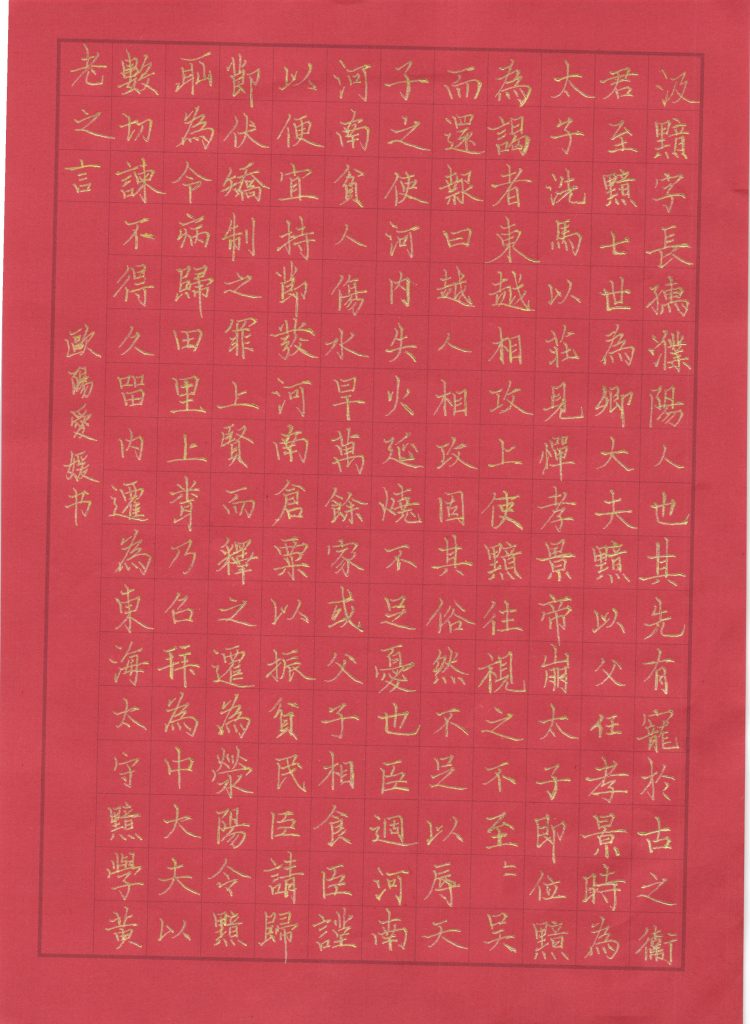 汲黯字長孺濮陽人也其先有寵於古之衞
君至黯七世為卿大夫黯以父任孝景時為
太子洗馬以莊見憚孝景帝崩太子即位黯
為謁者東越相攻上使黯往視之不至〻吳
而還報曰越人相攻固其俗然不足以辱天
子之使河内失火延燒不足憂也臣過河南
河南貧人傷水旱萬餘家或父子相食臣謹
以便宜持節發河南倉粟以振貧民臣請歸
節伏矯制之罪上賢而釋之遷為滎陽令黯
恥為令病歸田里上聞乃召拜為中大夫以
數切諫不得久留内遷為東海太守黯學黃
老之言
歐陽愛媛书